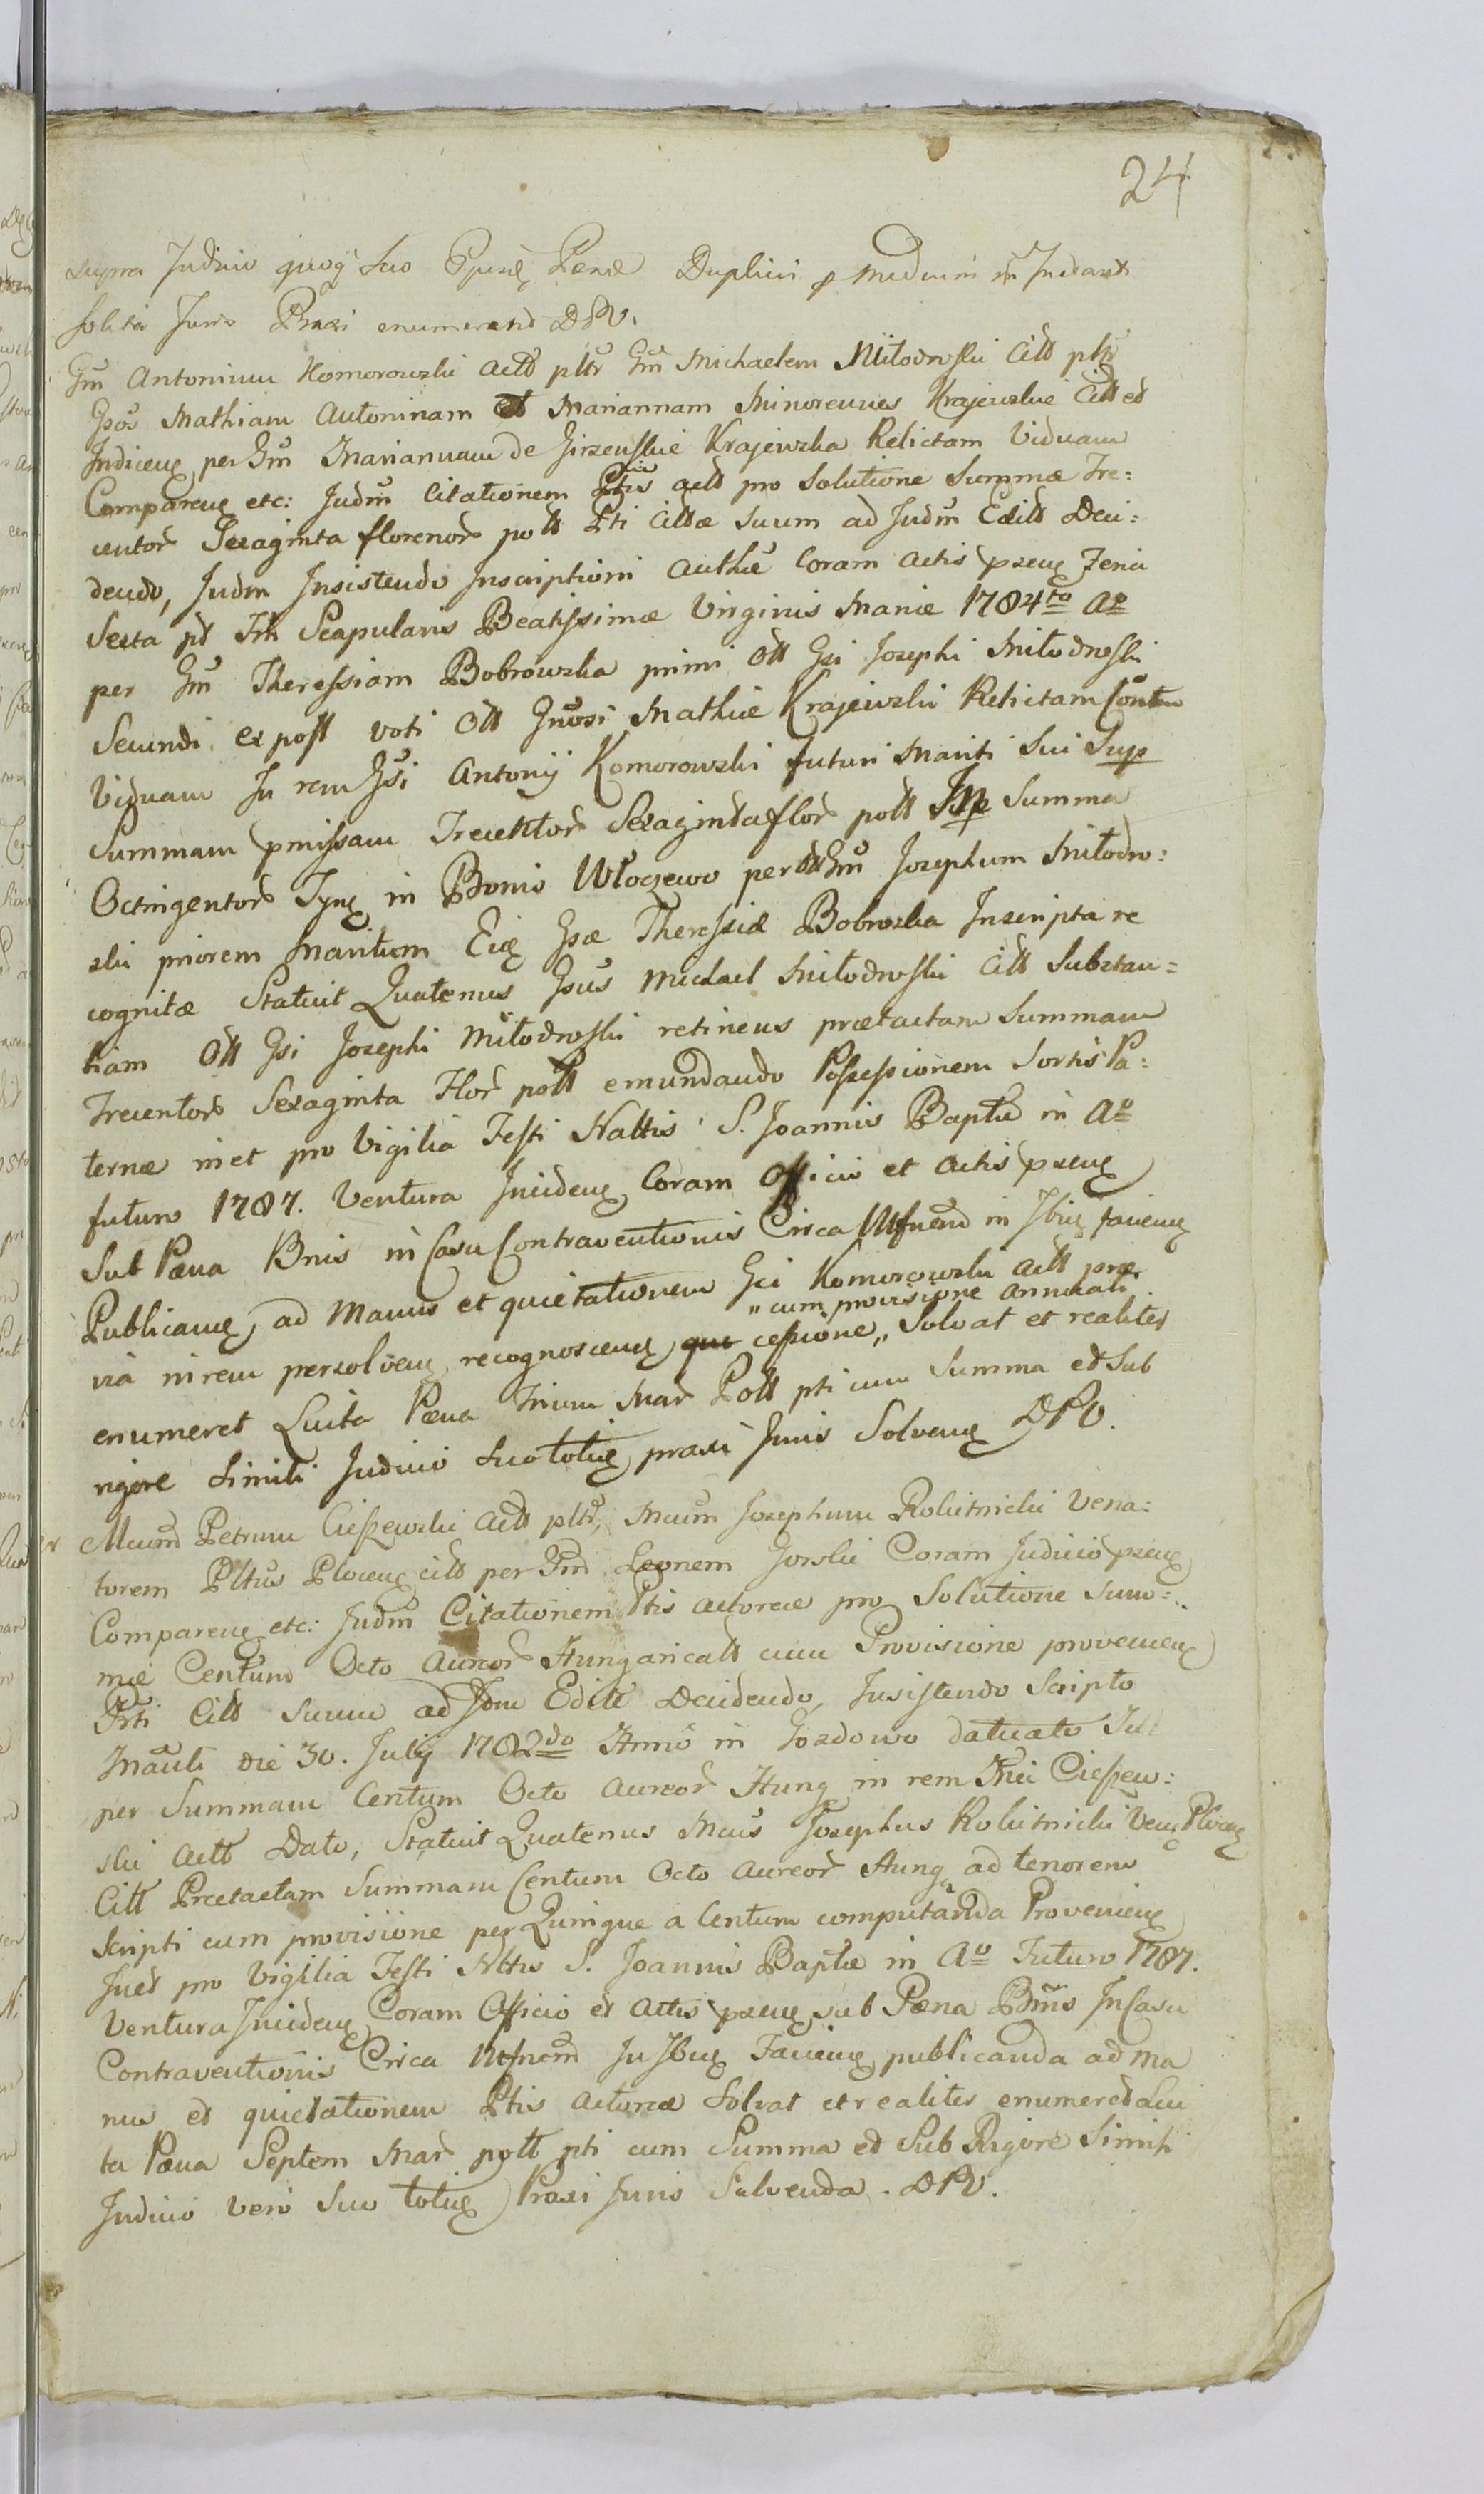 24
supra Judicio quoq suo Epuę Penæ Duplici p medium Incarat
solita Juris Praxi enumerand DPV.
Gm Antonium Komorowski actt pltr Gm Michaelem Miłodroski Citt pltr
Gsos Mathiam Antoninam et Mariannam Minorennes Krajewskie Citt et
Indiceuę per Gm Mariannam de Girzenskie Krajewska Relictam Viduam
Compareuę etc: Judm Citationem Ptis actt pro Solutione Summæ Tre:
centor Sexaginta florenor pott Pti Cittæ suum ad Judm Editt Deci:
dendo, Judm Insistendo Inscriptioni Authæ Coram Actis pzeuę Feria
Sexta pt Fm Scapularis Beatissimæ Virginis Mariæ 1784to Ao
per Gm Theressiam Bobrowska primi Ott Gsi Josephi Miłodroski
Secundi ex post voti Ott Gnosi Mathiæ Krajewski Relictam Contm
Viduam In rem Gsi Antonij Komorowski futuri Mariti Sui Sup
Summam pmissam Trecentor Sexagintaflor pott Sup Summa
Octingentor Tynę in Bonis Włoczewo per Ott Gm Josephum Miłodro:
ski priorem Maritum Eię Gsæ Theressiæ Bobroska Inscripta re
cognitæ Statuit Quatenus Gsus Michael Miłodroski Citt Substan=
tiam Ott Gsi Josephi Miłodroski retinens prætactam Summam
Trecentor Sexaginta Flor pott emundando Possessionem Sortis Pa:
ternæ inet pro Vigilia Festi Nattis S. Joannis Baptæ in Ao
futuro 1787. Ventura Incideuę Coram Officio et Actis pzeuę
Sub Pæna Bnis in Casu Contraventionis Circa Mfnem in Ibię facieuę
Publicauę, ad Manus et quietationem Gsi Komorowski actt præ
„ cum provisione annuali
via in rem persolveuę, recognosceuę, que cessione „ Solvat et realiter
enumeret Luita Pæna Trium Mar Pott pti cum Summa et Sub
rigore Simili Judicio Suo totię, praxi Juris Solveuę DPV.
Mcum Petrum Cieszewski Actt pltr, Mcum Josephum Rokitnicki Vena:
torem Pltus Ploceuę citt per Gm Leonem Gorski Coram Judicio pzeuę
Compareuę etc: Judm Citationem Ptis actoreæ pro Solutione Sum:
mæ Centum Octo Aureor Hungaricatt cum Provisione provenieuę
Pti Citt Suum ad Jdm Editt Decidendo, Insistendo Scripto
Manti die 30. July 1782do Anno in Gozdowo datuato Su
per Summam Centum Octo Aureor Hung in rem Mci Cieszew:
ski Actt Dato, Statuit Quatenus Mcus Josephus Rokitnicki Venę Ploceuę
Citt Prætactam Summam Centum Octo Aureor Hung ad tenorem
Scripti cum provisione per Quinque a Centum computanda Provenieuę
Inet pro Vigilia Festi Nttis S. Joannis Baptæ in Ao Futuro 1787.
Ventura Incideuę Coram Officio et Actis pzeuę sub Pæna Bnis In Casu
Contraventionis Circa Mfnem In Ibię Facieuę publicanda ad Ma
nus et quietationem Ptis Actoreæ Solvat et realiter enumeret Lui
ta Pæna Septem Mar pott pti cum Summa et Sub Rigore Simili
Judicio Vero Suo totię Praxi Juris Solvenda. DPV.